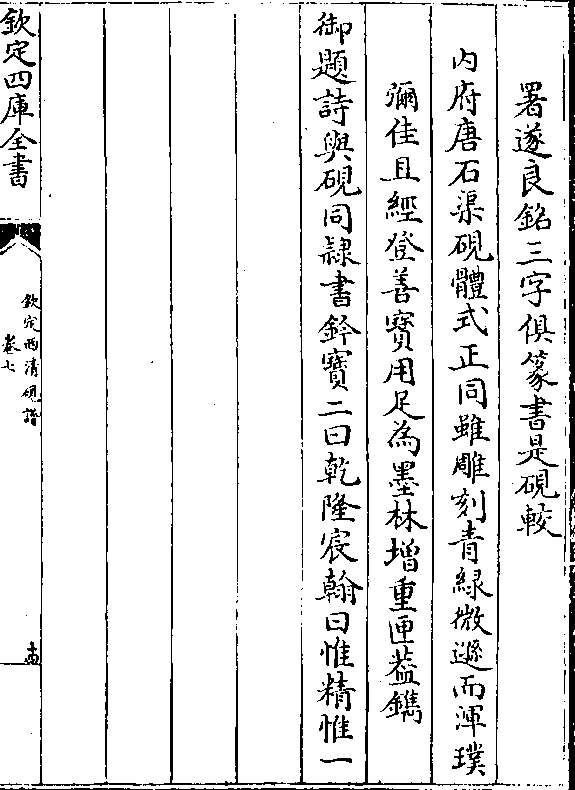 署遂良銘三字俱篆書是硯較
内府唐石渠硯體式正同雖雕刻青緑微遜而渾璞
彌佳且經登善寳用足為墨林增重匣葢鐫
御題詩與硯同隷書鈐寳二曰乾隆宸翰曰惟精惟一
欽定四庫全書
欽定西清硯譜
卷七
十四